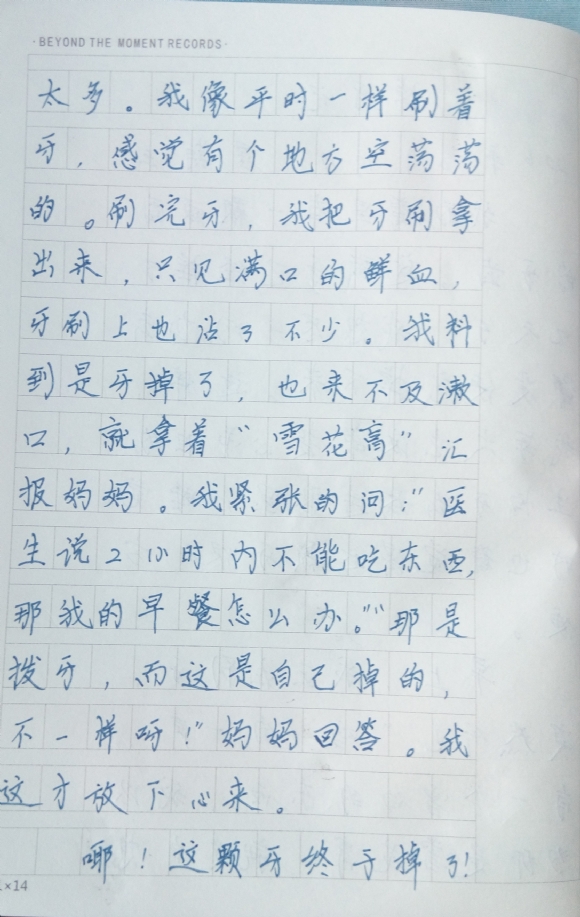 ·BEYOND THE MOMENT RECORDS·
太多。我像平时一样刷着
牙，感觉有个地方空荡荡
的。刷完牙，我把牙刷拿
出来，只见满口的鲜血，
牙刷上也沾了不少。我料
到是牙掉了，也来不及漱
口，就拿着“雪花膏”汇
报妈妈。我紧张的问：“医
生说2小时内不能吃东西，
那我的早餐怎么办。”“那是
拨牙，而这是自己掉的，
不一样呀！”妈妈回答。我
这才放下心来。
哪！这颗牙终于掉了！
×14